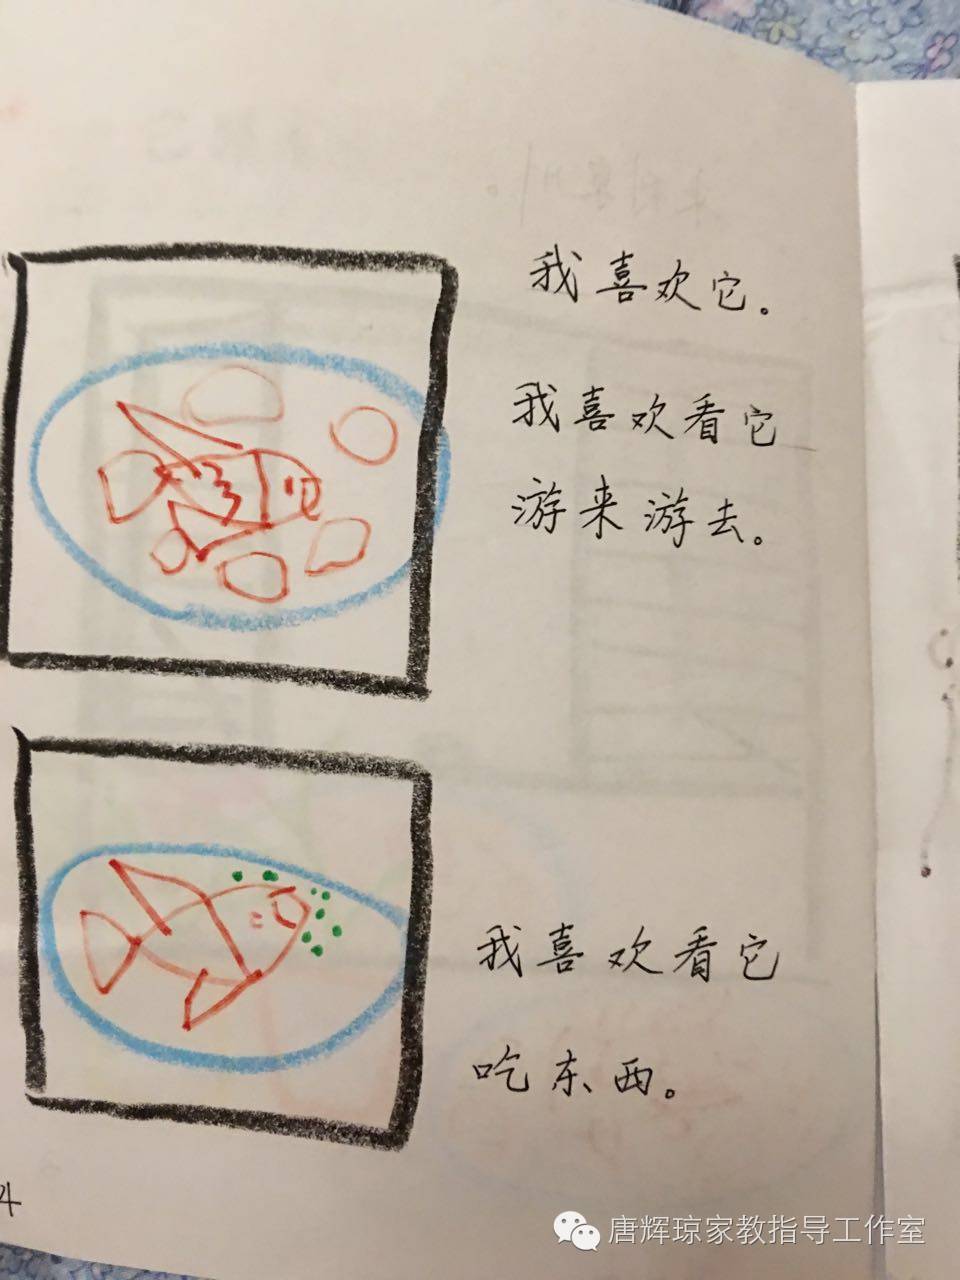 我喜欢它。
我喜欢看它
游来游去。
我喜欢看它
吃东西。
4
唐辉琼家教指导工作室